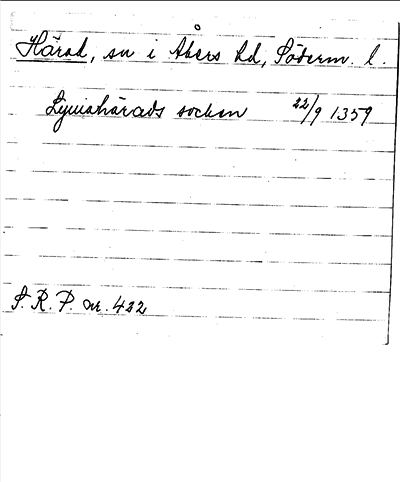 Härad, sn i Åkers hd, Söderm. l.
Lyuiahärads socken 22/9 1359
S. R. P. nr. 422